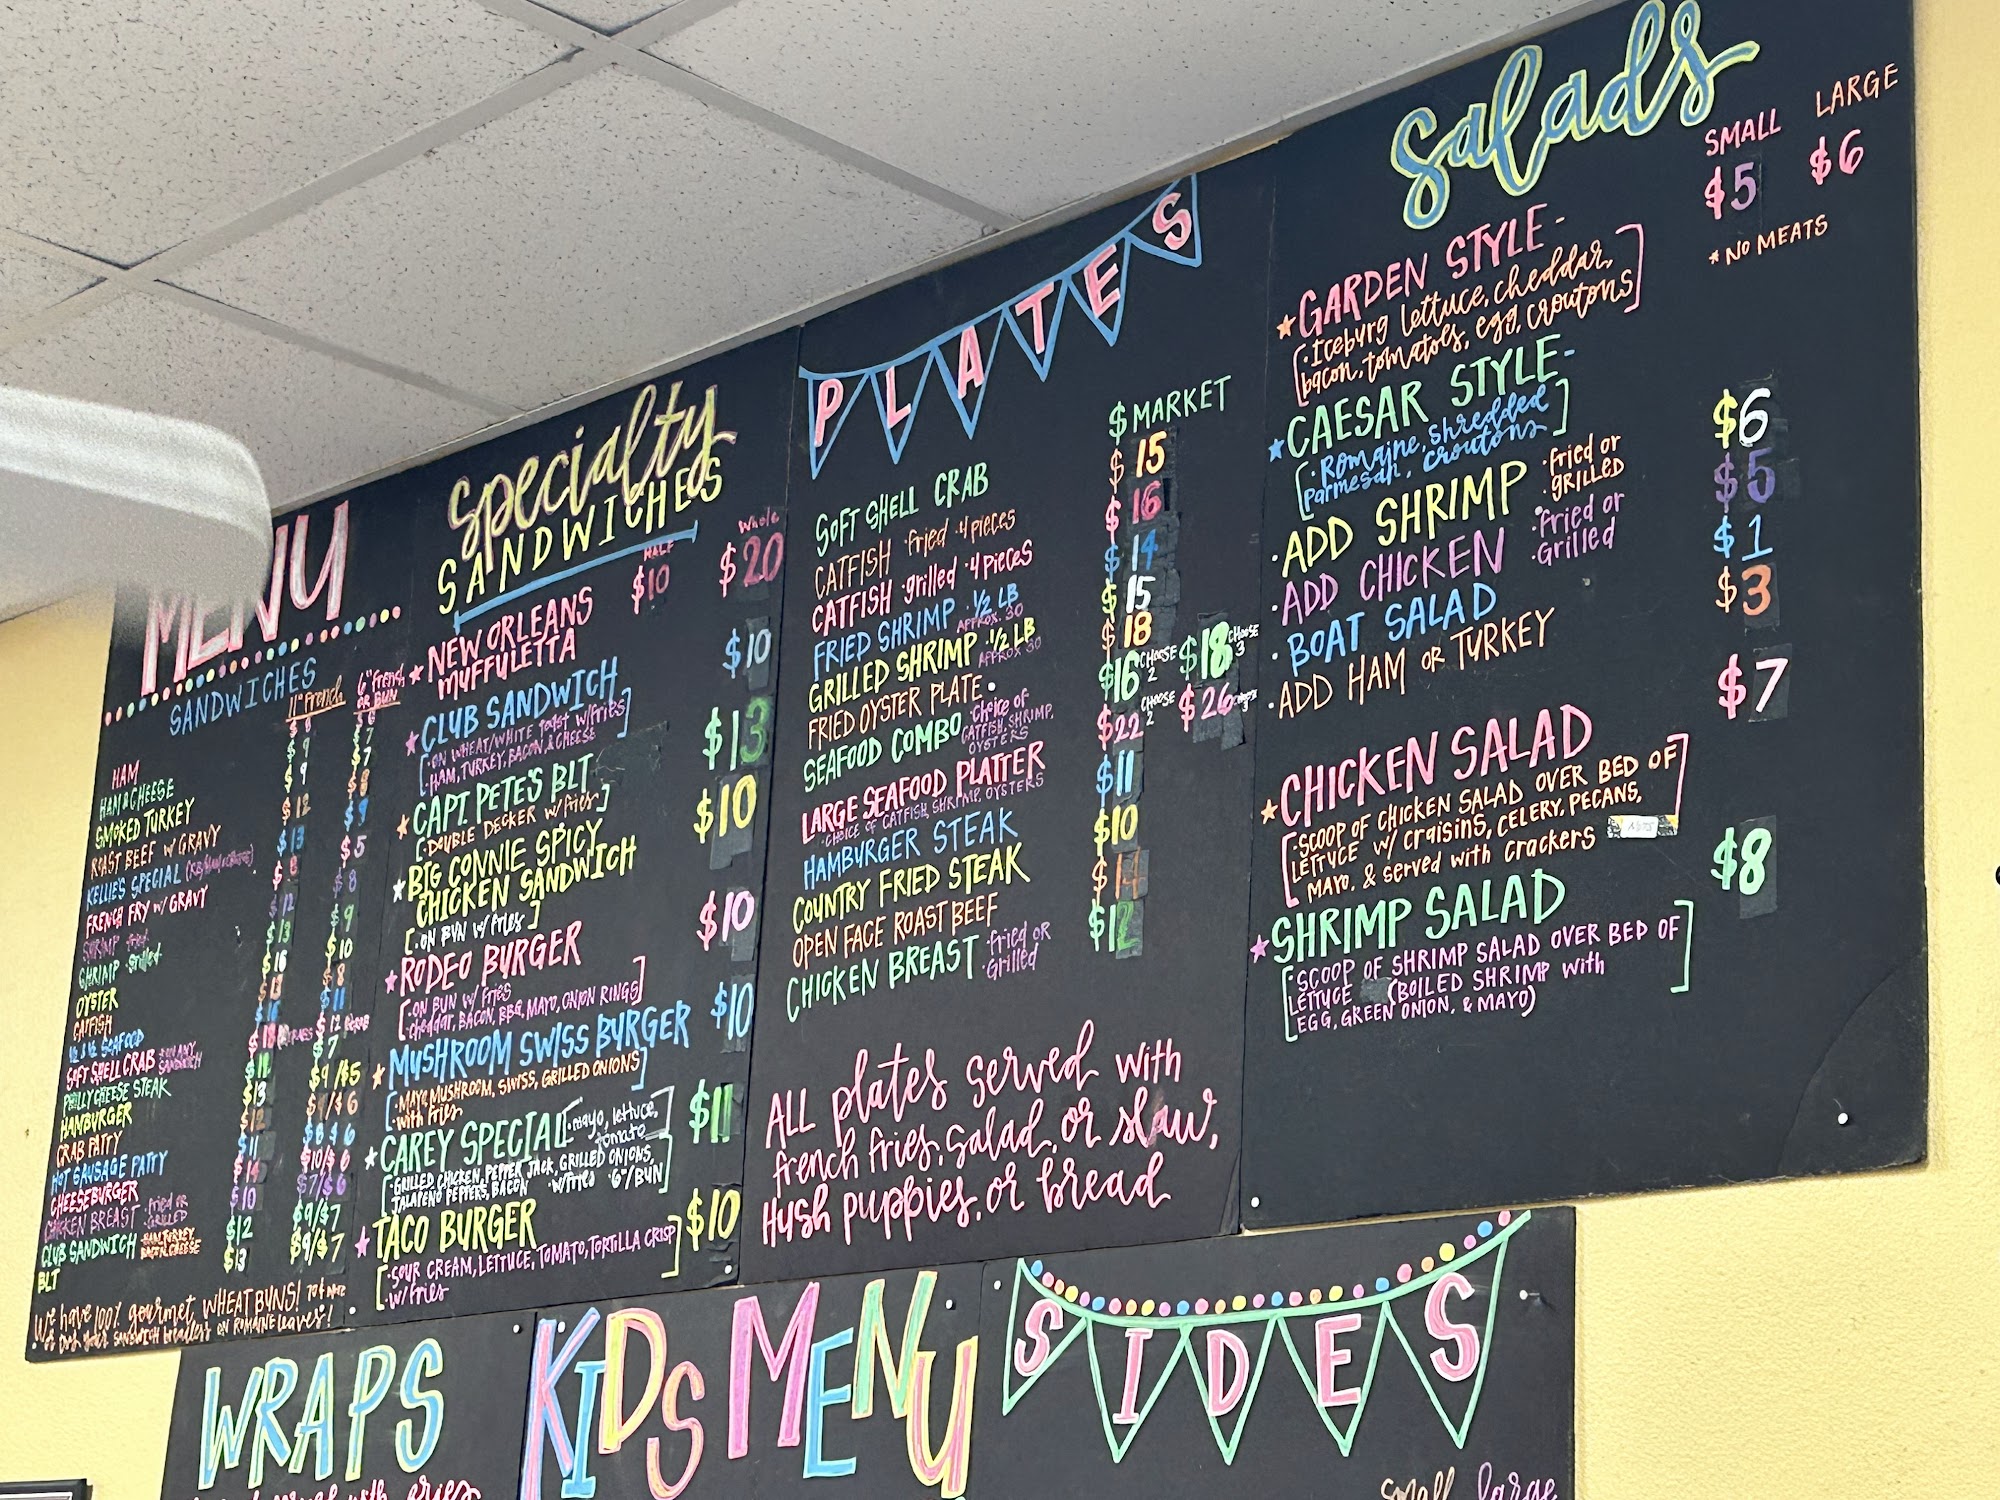 MENU
SANDWICHES
11" French
6" French
OR BUN
HAM
HAM & CHEESE
SMOKED TURKEY
ROAST BEEF W/ GRAVY
KELLIE'S SPECIAL
FRENCH FRY W/ GRAVY
SHRIMP fried
SHRIMP grilled
OYSTER
CATFISH
½ & ½ SEAFOOD
SOFT SHELL CRAB
PHILLY CHEESE STEAK
HAMBURGER
CRAB PATTY
HOT SAUSAGE PATTY
CHEESEBURGER
CHICKEN BREAST · fried or
· GRILLED
CLUB SANDWICH HAM, TURKEY,
BACON, CHEESE
BLT
We have 100% gourmet WHEAT BUNS!
Specialty
SANDWICHES
HALF
Whole
★ NEW ORLEANS
MUFFULETTA
$10
$20
★ CLUB SANDWICH $10
[· ON WHEAT/WHITE toast w/fries
· HAM, TURKEY, BACON, & CHEESE]
★ CAPT. PETE'S BLT $13
[· DOUBLE DECKER w/ fries]
★ BIG CONNIE SPICY $10
CHICKEN SANDWICH
[· ON BUN w/ fries]
★ RODEO BURGER $10
[· ON BUN w/ fries
· cheddar, BACON, BBQ, MAYO, ONION RINGS]
★ MUSHROOM SWISS BURGER $10
[· MAYO, MUSHROOM, SWISS, GRILLED ONIONS]
· with fries
★ CAREY SPECIAL [· mayo, lettuce, $11
tomato
[· GRILLED CHICKEN, PEPPER JACK, GRILLED ONIONS,
JALAPENO PEPPERS, BACON · w/fries · 6"/BUN]
★ TACO BURGER $10
[· SOUR CREAM, LETTUCE, TOMATO, TORTILLA CRISP]
· w/fries
PLATES
SOFT SHELL CRAB $ MARKET
CATFISH · fried · 4 pieces $15
CATFISH · grilled · 4 pieces $16
FRIED SHRIMP · ½ LB $14
APPROX. 30
GRILLED SHRIMP · ½ LB $15
APPROX 30
FRIED OYSTER PLATE · $18
SEAFOOD COMBO · Choice of $16 CHOOSE 2 $18 CHOOSE 3
CATFISH, SHRIMP,
OYSTERS
LARGE SEAFOOD PLATTER $22 CHOOSE 2 $26
· CHOICE OF CATFISH, SHRIMP, OYSTERS
HAMBURGER STEAK $11
COUNTRY FRIED STEAK $10
OPEN FACE ROAST BEEF $14
CHICKEN BREAST · fried OR $12
· Grilled
ALL plates served with
french fries, salad, or slaw,
Hush puppies, or bread
Salads
SMALL LARGE
$5 $6
* NO MEATS
★ GARDEN STYLE -
[· Iceburg lettuce, cheddar,
bacon, tomatoes, egg, croutons]
★ CAESAR STYLE -
[· Romaine, shredded
parmesan, croutons]
· ADD SHRIMP · fried or $6
· GRILLED
· ADD CHICKEN · fried or $5
· Grilled
· BOAT SALAD $1
· ADD HAM OR TURKEY $3
★ CHICKEN SALAD $7
[· SCOOP OF CHICKEN SALAD OVER BED OF
LETTUCE W/ craisins, CELERY, PECANS,
MAYO. & served with crackers]
★ SHRIMP SALAD $8
[· SCOOP OF SHRIMP SALAD OVER BED OF
LETTUCE (BOILED SHRIMP with
EGG, GREEN ONION, & MAYO)]
WRAPS
KIDS MENU
SIDES
small large